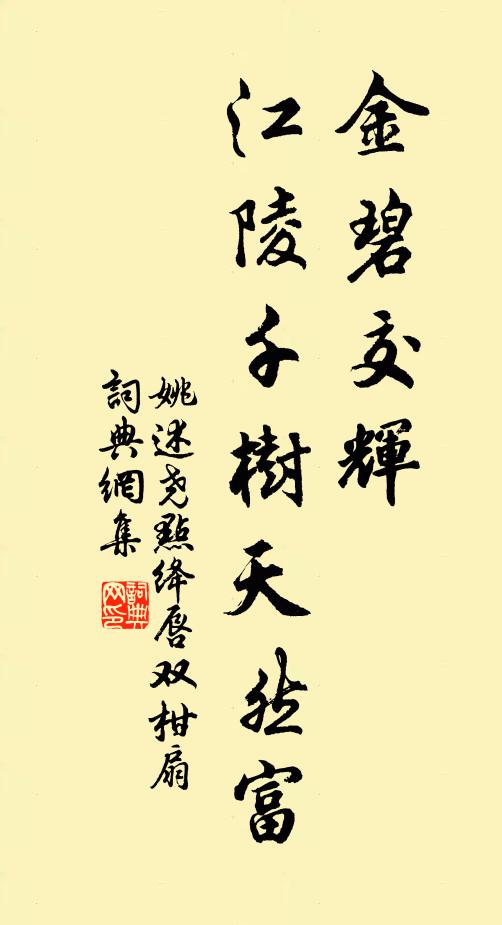 金碧交輝
江陵千樹天然富
姚述尧點绛唇双柑扇
詞典網集
詞典
网印